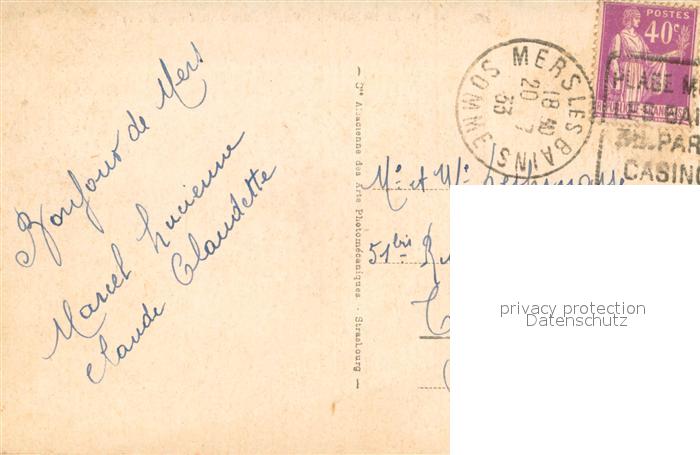 Bonjour de Mers
Marcel Lucienne
Claude Claudette
Cie Alsacienne des Arts Photomécaniques - Strasbourg
MERS LES BAINS
SOMME
18 30
20 7
33
POSTES
40c
PLAGE M
BAI
PAR
CASINO
Mr et Me
51bis
privacy protection
Datenschutz